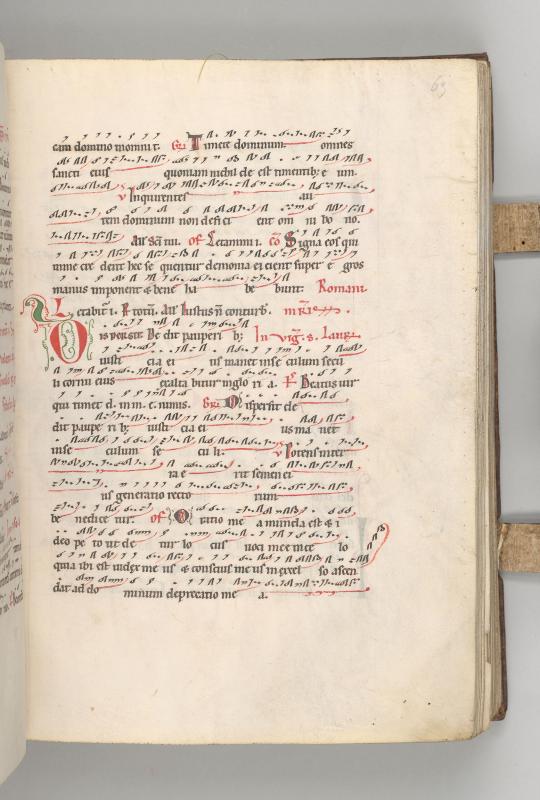 63
cam domino in omni t. Gr Timete dominum omnes
sancti eius quoniam nichil de est timentib; e um.
v Inquirentes au
tem dominum non defici ent om ni bo no.
All Sci tui. Of Letamini. Co Signa eos qui
in me cre dent hec se quentur demonia ei cient super e gros
manus imponent & bene ha be bunt: Romani
L etabit i. totū. All Iustus n conturb. m̄r
D is persit De dit pauperi b; In vig. s. Laur.
iusti cia ei us manet in se culum secu
li cornu eius exalta bitur in glo ri a. Ps Beatus uir
qui timet d. in m. e. nimis. Gr Dispersit de
dit paupe ri b; iusti cia ei us ma net
in se culum se cu li: v Potens in ter
ra e rit semen ei
us generatio recto rum
be nedice tur. Of O ratio me a munda est & i
deo pe to ut de tur lo cus uoci mee in ce lo
quia ibi est iudex me us & conscius me us in excel so ascen
dat ad do minum deprecatio me a.